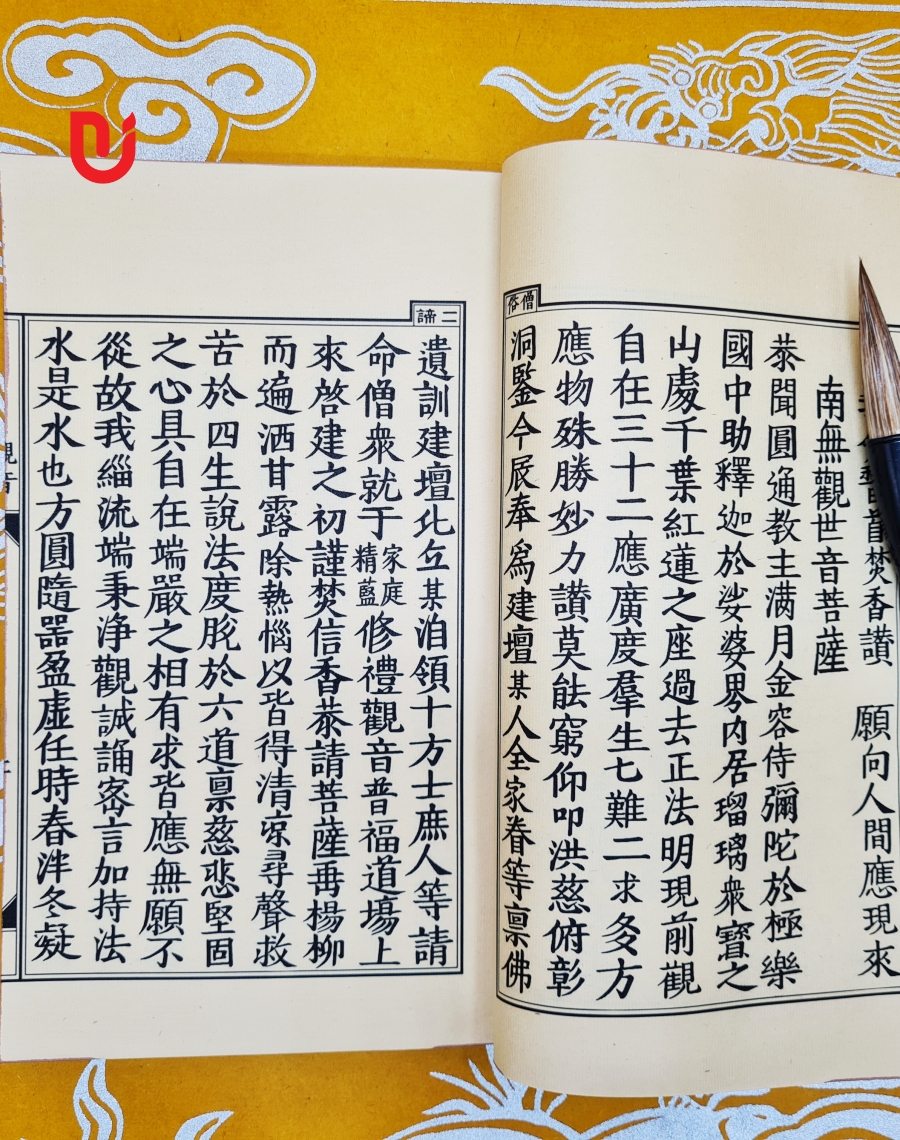 首焚香讃　願向人間應現來
南無觀世音菩薩
恭聞圓通教主满月金容侍彌陀於極樂
國中助釋迦於娑婆界内居瑠璃衆寳之
山處千葉紅蓮之座過去正法明現前觀
自在三十二應廣度羣生七難二求多方
應物殊勝妙力讃莫能窮仰叩洪慈俯彰
僧俗
洞鑒今辰奉爲建壇某人全家眷等禀佛
二諦
遺訓建壇北丘某洎領十方士庶人等請
命僧衆就于家庭精藍修禮觀音普福道塲上
來啓建之初謹焚信香恭請菩薩再楊柳
而遍洒甘露除熱惱以皆得清凉尋聲救
苦於四生説法度脫於六道禀慈悲堅固
之心具自在端嚴之相有求皆應無願不
從故我緇流端秉浄觀誠誦密言加持法
水是水也方圓隨器盈虛任時春泮冬凝